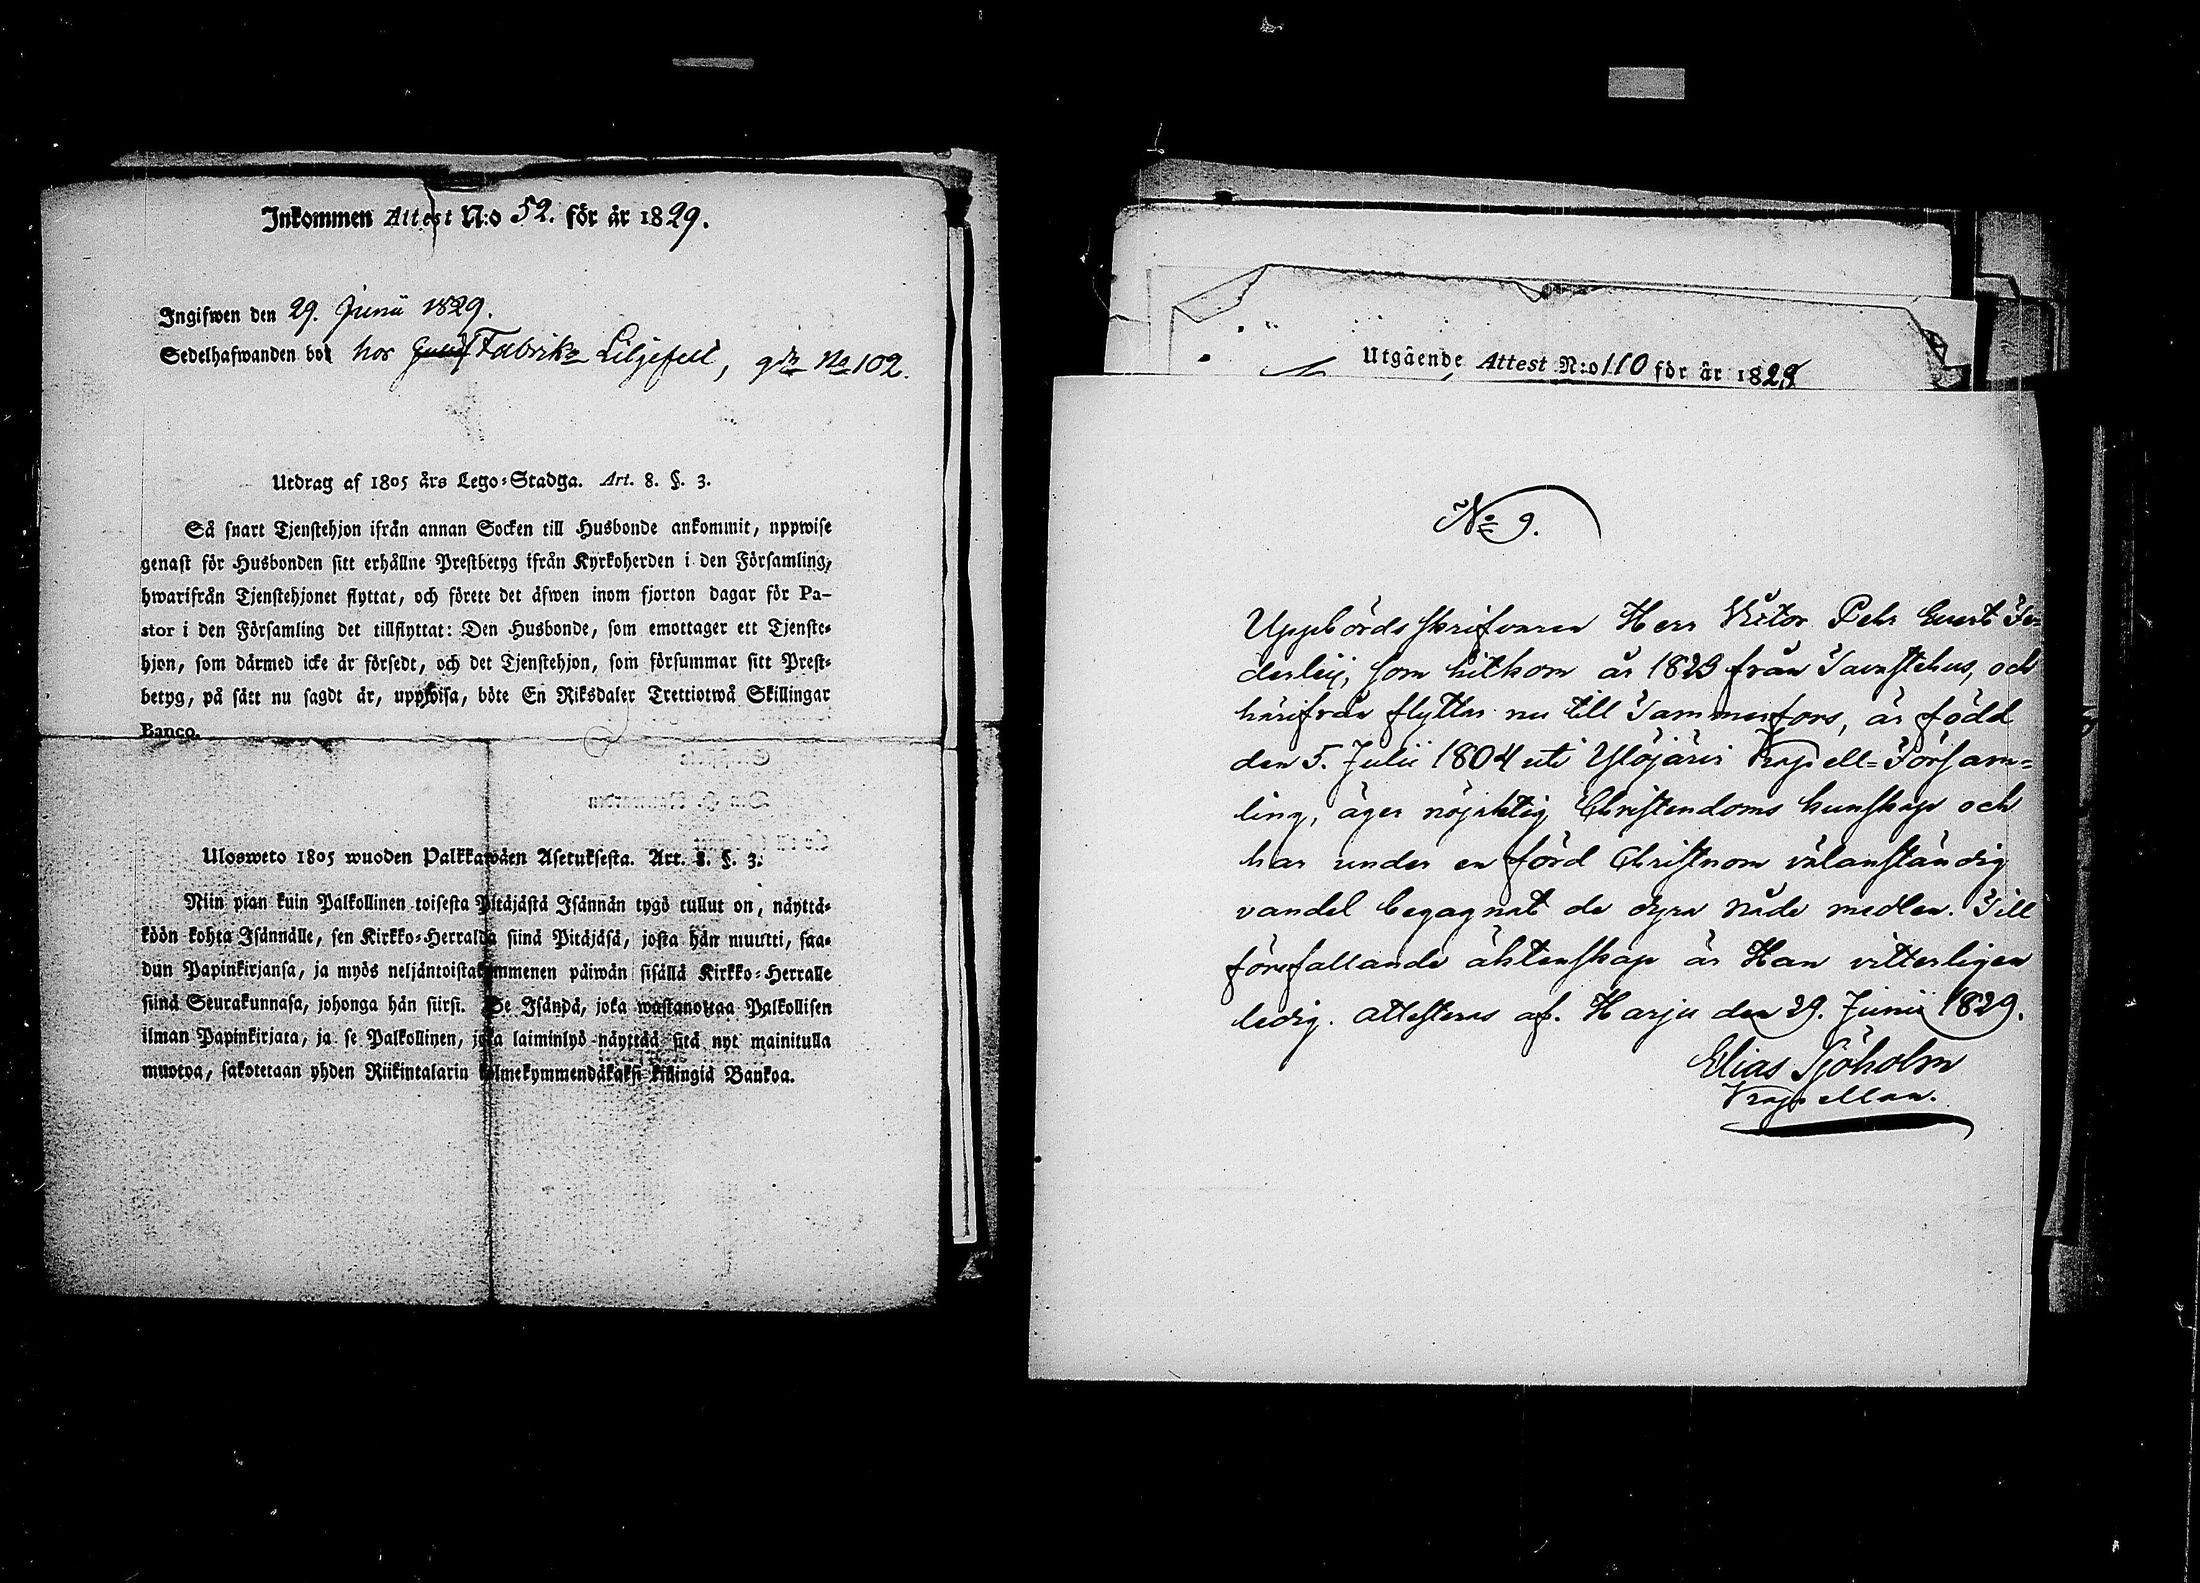 Inkommen Attest N:o 52. för år 1829.
Ingifwen den 29. Junii 1829.
Sedelhafwanden bor hos Fabrikn Liljefelt, gdn No 102.
Utdrag af 1805 års Lego-Stadga. Art. 8. §. 3.
Så snart Tjenstehjon ifrån annan Socken till Husbonde ankommit, uppwise
genast för Husbonden sitt erhållne Prestbetyg ifrån Kyrkoherden i den Församling,
hwarifrån Tjenstehjonet flyttat, och förete det äfwen inom fjorton dagar för Pa-
stor i den Församling det tillflyttat: Den Husbonde, som emottager ett Tjenste-
hjon, som därmed icke är försedt, och det Tjenstehjon, som försummar sitt Prest-
betyg, på sätt nu sagdt är, uppwisa, böte En Riksdaler Trettiotwå Skillingar
Banco.
Ulosweto 1805 wuoden Palkkawäen Asetuksesta. Art. 8. §. 3.
Niin pian kuin Palkollinen toisesta Pitäjästä Isännän tygö tullut on, näyttä-
köön kohta Isännälle, sen Kirkko-Herralda siinä Pitäjäsä, josta hän muutti, saa-
dun Papinkirjansa, ja myös neljäntoistakymmenen päiwän sisällä Kirkko-Herralle
siinä Seurakunnasa, johonga hän siirsi. Se Isändä, joka wastanottaa Palkollisen
ilman Papinkirjata, ja se Palkollinen, joka laiminlyö näyttää sitä nyt mainitulla
muotoa, sakotetaan yhden Riikintalarin kolmekymmendäkaksi killingiä Bankoa.
Utgående Attest N:o 110 för år 1829
No 9.
Uppbördsskrifvaren Herr Victor Pehr Evert Fe-
derleij, som hitkom år 1823 från Tavastehus, och
härifrån flyttar nu till Tammerfors, är född
den 5. Julii 1804 uti Ylöjärvi Kapell-Försam=
ling, äger nöjaktig Christendoms kunskap och
har under en förd Christnom välanständig
vandel begagnat de dyra Nåde medlen. Till
förefallande äktenskap är Han vitterligen
ledig. attesteras af. Harju den 29. Junii 1829.
Elias Sjöholm
Kapellan.